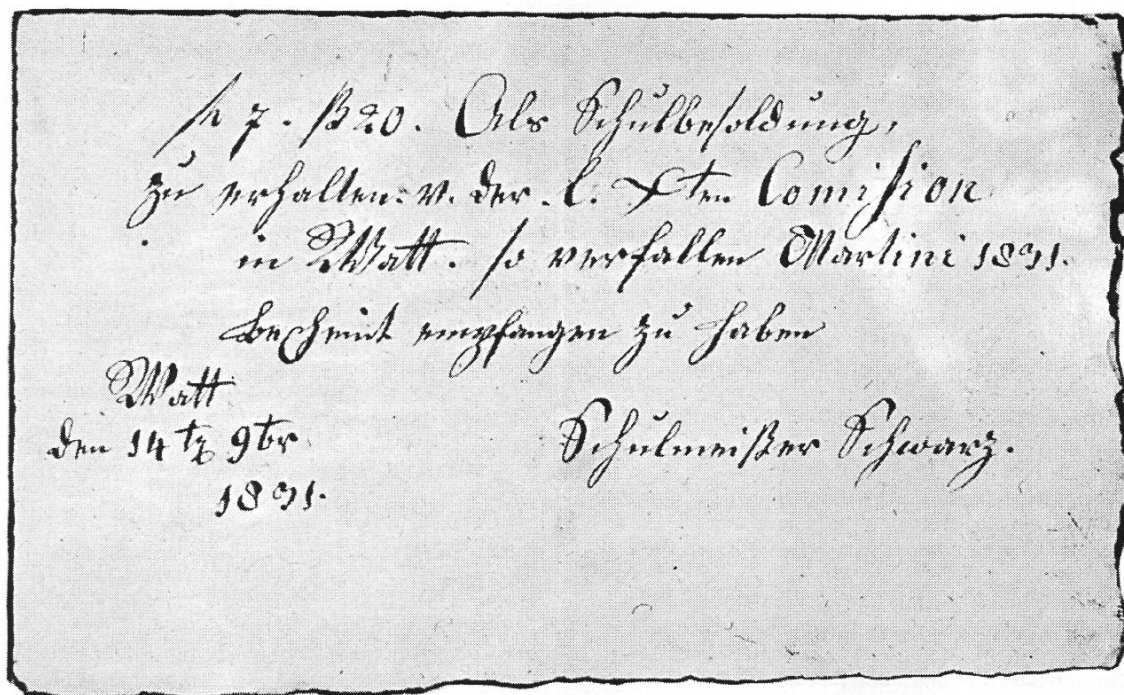 fl 7. ß 20. Als Schulbesoldung,
zu erhalten: v. der. L. Xten Comision
in Watt. so verfallen Martini 1831.
bescheint empfangen zu haben
Watt
den 14 9tbr
Schulmeister Schwarz.
1831.